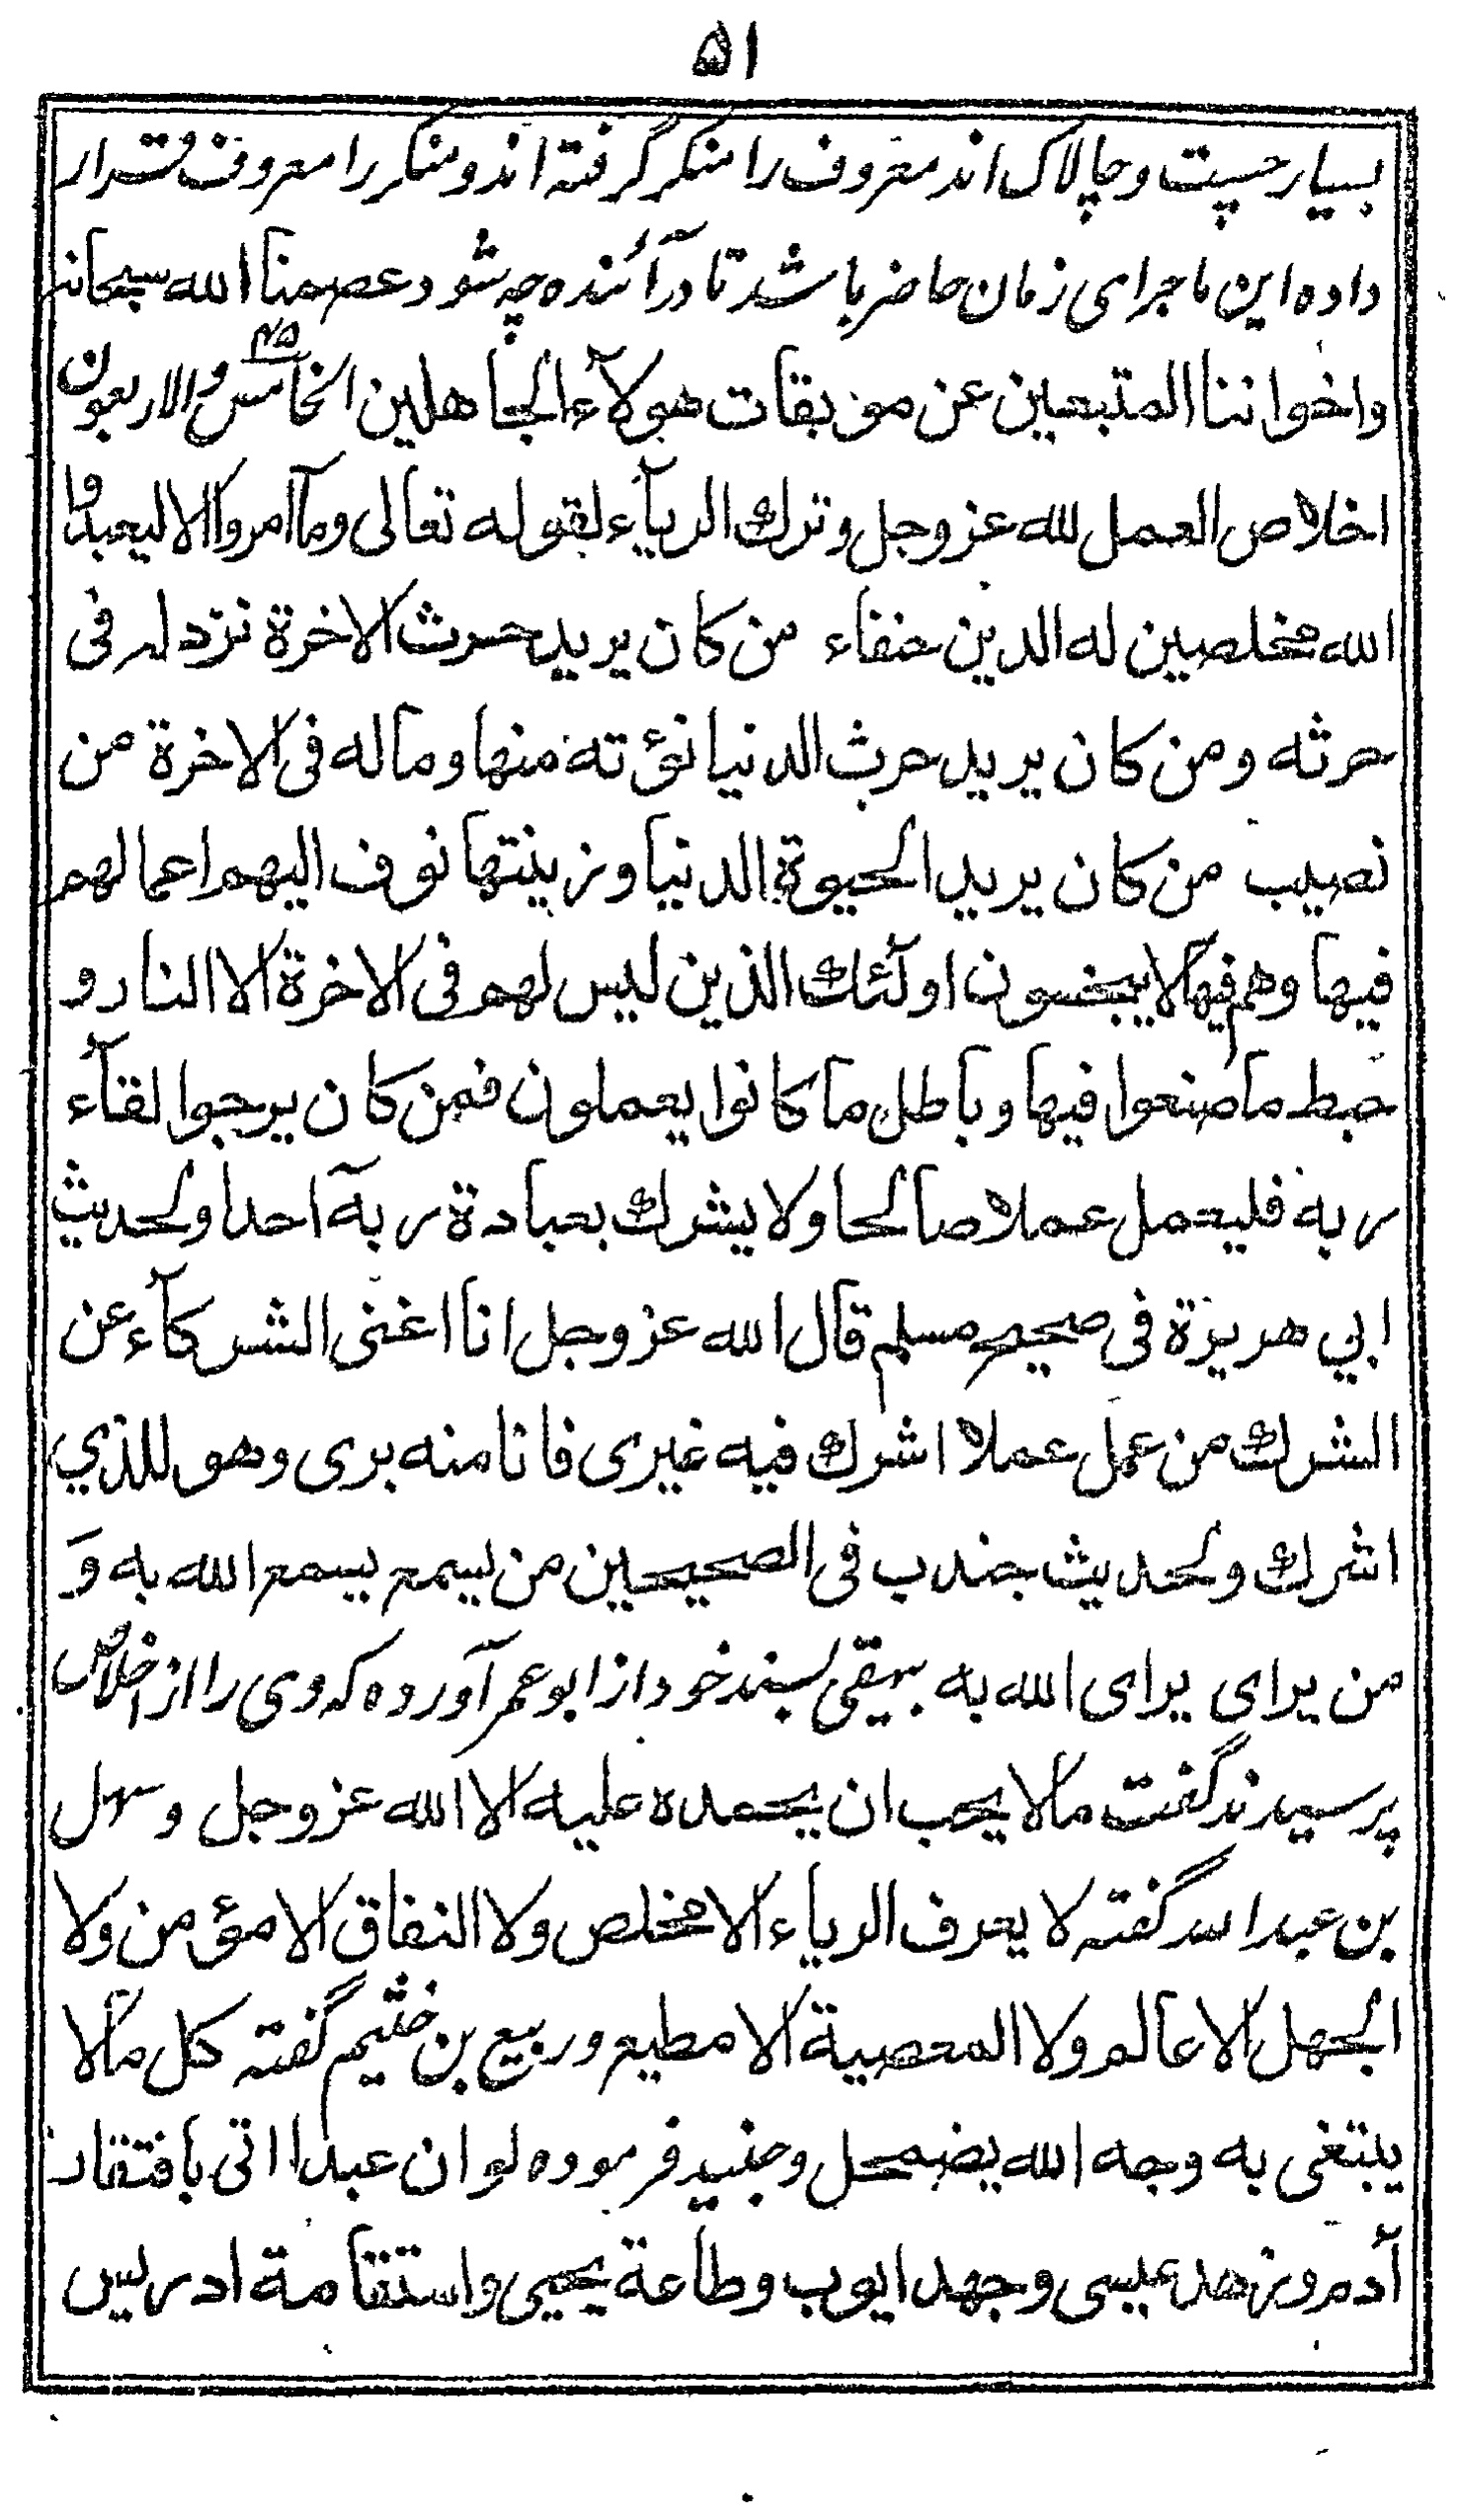 ۵۱
بسیار چست و چالاک اند معروف را منکر گرفته اند و منکر را معروف قرار
داده این ماجرای زمان حاضر باشد تا در آئنده چه شود عصمنا الله سبحانه
واخواننا المتبعين عن موبقات هولآء الجاهلين الخامس والاربعون ۴۵
اخلاص العمل لله عز وجل وترك الريآء لقوله تعالى ومآ امروا الا ليعبدوا
الله مخلصين له الدين حنفاء من كان يريد حرث الاخرة نزد له فى
حرثه ومن كان يريد حرث الدنيا نؤته منها وماله فى الاخرة من
نصيب من كان يريد الحيوة الدنيا وزينتها نوف اليهم اعمالهم
فيها وهم فيها لا يبخسون اولٓئك الذين ليس لهم فى الاخرة الا النار و
حبط ما صنعوا فيها وباطل ما كانوا يعملون فمن كان يرجوا لقآء
ربه فليعمل عملا صالحا ولا يشرك بعبادة ربهٓ احدا ولحديث
ابي هريرة فى صحيح مسلم قال الله عز وجل انا اغنى الشركآء عن
الشرك من عمل عملا اشرك فيه غيرى فانا منه برى وهو للذي
اشرك ولحديث جندب فى الصحيحين من يسمع يسمع الله به وَ
من يراى يراى الله به بیهقی بسند خود از ابو عمر آورده که وی را از اخلاص
پرسیدند گفت مالا يحب ان يحمده عليه الا الله عز وجل وسهل
بن عبد الله گفته لا يعرف الرياء الا مخلص ولا النفاق الا مؤمن ولا
الجهل الا عالم ولا المعصية الا مطيع وربيع بن خثيم گفته كل مالا
يبتغى به وجه الله يضمحل وجنید فرموده لو ان عبدا اتى بافتقار
آدم وزهد عيسى وجهد ايوب وطاعة يحيى واستقامة ادريس